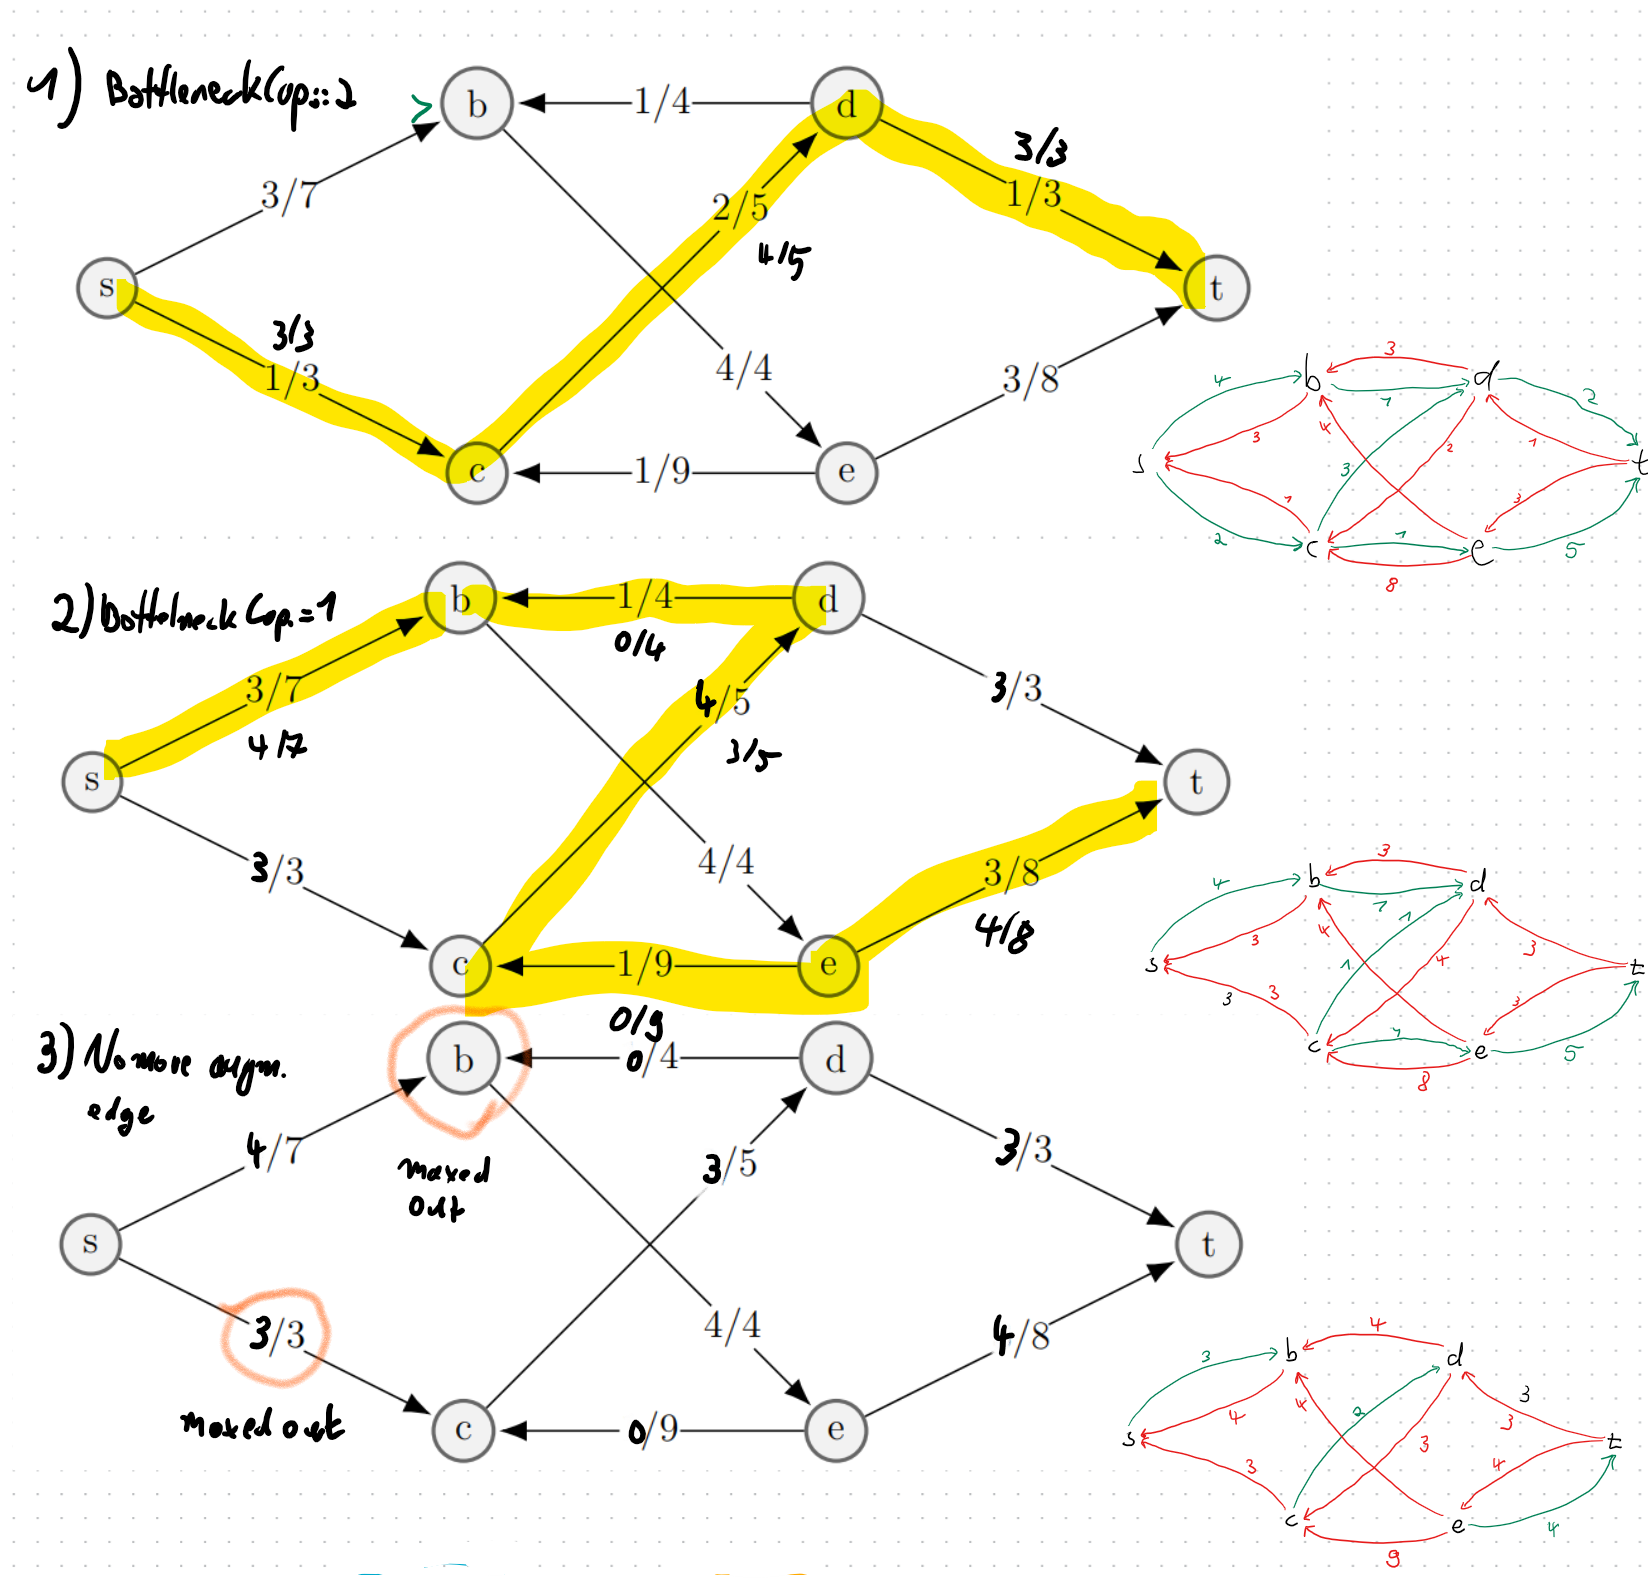 1) BottleneckCap.: 2
b
1/4
d
3/7
2/5
4/5
3/3
1/3
s
3/3
1/3
t
4/4
3/8
c
1/9
e
b
3
d
4
1
2
3
4
2
1
s
3
t
1
3
2
c
1
e
5
8
2) Bottelneck Cap.=1
b
1/4
0/4
d
3/7
4/7
4/5
3/5
3/3
s
t
3/3
4/4
3/8
4/8
c
1/9
0/9
e
b
3
d
4
1
1
3
4
4
3
s
1
t
3
3
3
c
1
e
5
8
3) No more augm.
edge
b
0/4
d
4/7
maxed
out
3/5
3/3
s
t
3/3
4/4
4/8
maxed out
c
0/9
e
b
4
d
3
4
4
2
3
3
3
s
3
4
t
c
e
4
9